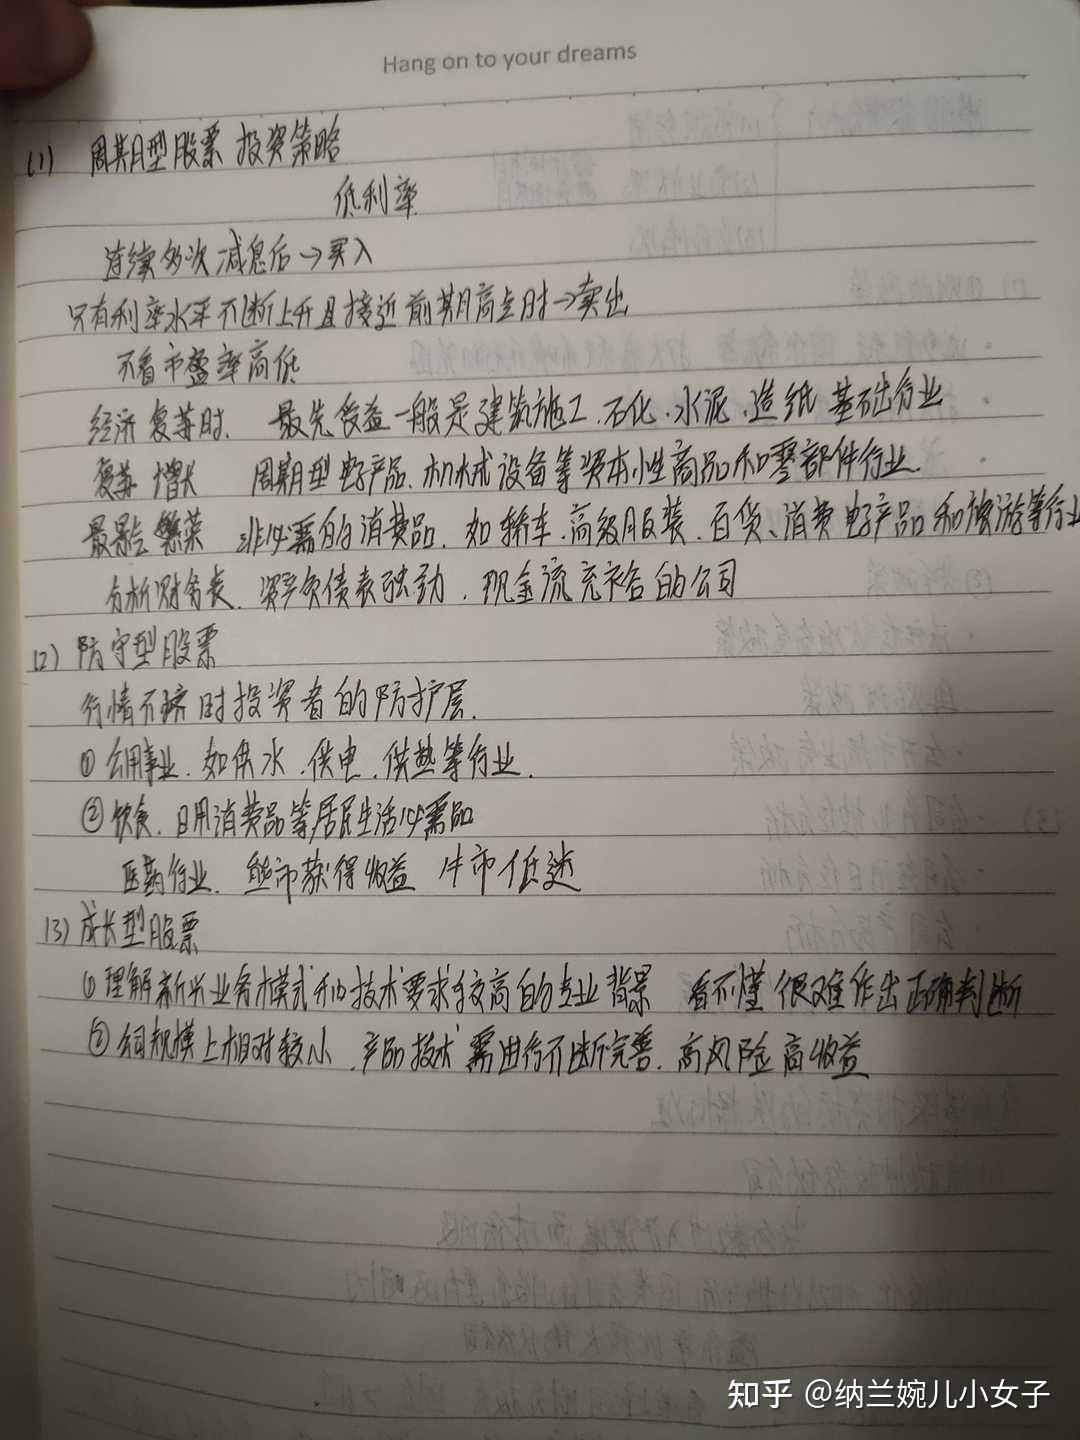 Hang on to your dreams
(1) 周期型股票 投资策略
低利率
连续多次减息后→买入
只有利率水平不断上升且接近前期高点时→卖出
不看市盈率高低
经济复苏时. 最先受益一般是建筑施工.石化.水泥.造纸 基础行业
复苏 增长 周期型电子产品.机械设备等资本性商品和零部件行业.
最景气 繁荣 非必需的消费品.如轿车.高级服装.百货、消费电子产品和旅游等行业
分析财务表.资产负债表强劲.现金流充裕的公司
(2) 防守型股票
行情不济时投资者的防护层.
① 公用事业.如供水.供电.供热等行业.
② 饮食.日用消费品等居民生活必需品
医药行业. 熊市获得收益 牛市低迷
(3) 成长型股票
① 理解新兴业务模式和技术要求较高的专业背景 看不懂很难作出正确判断
② 公司规模上相对较小.产品技术需进行不断完善.高风险高收益
知乎 @纳兰婉儿小女子